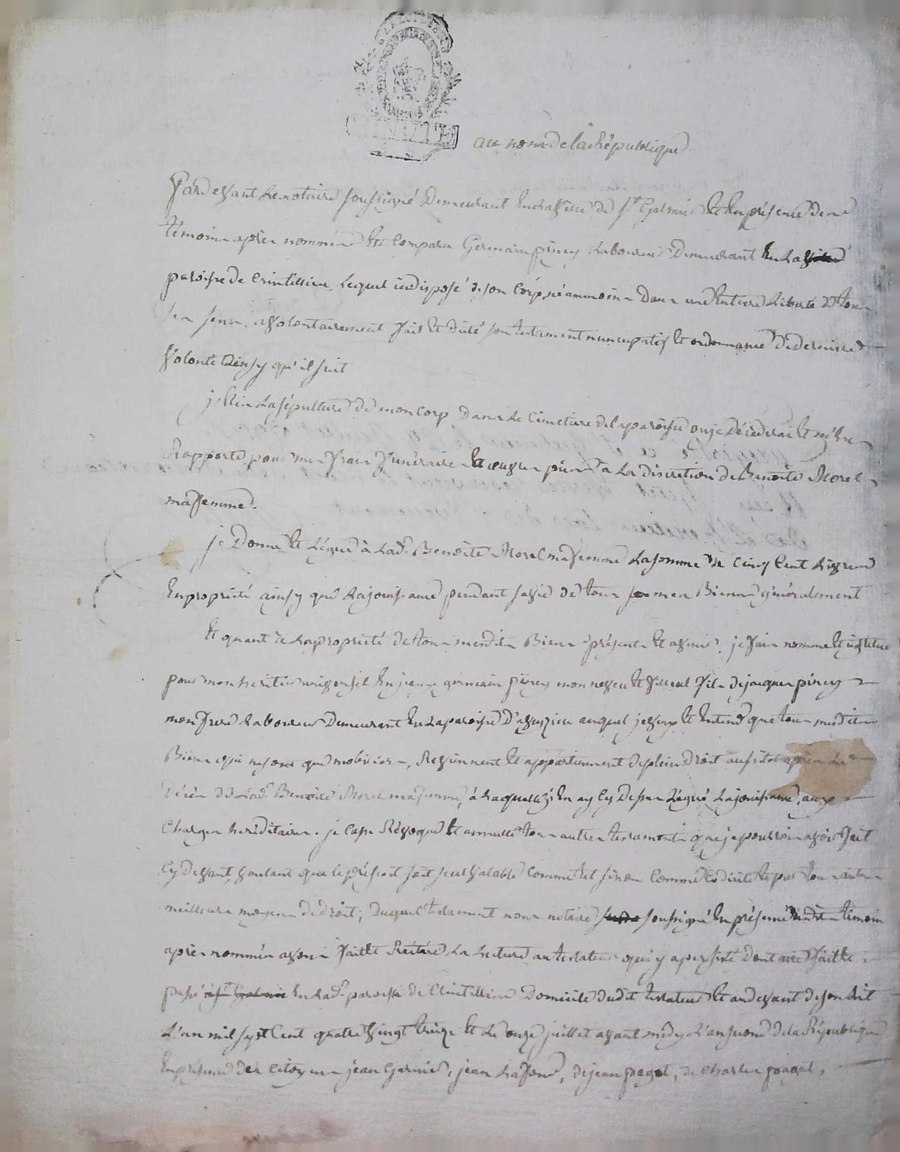 au nom de la République
Pardevant le notaire soussigné demeurant en la ville de St Galmier et en présence des
témoins après nommés est comparu Germain pincy Laboureur demeurant en la
paroisse de Crintillieu, Lequel indisposé de son Corp, néammoins dans une Entiere Liberté de tous
ses sens, a volontairement fait et dicté son testament nuncupatif et ordonnance de derniere
Volonté Ainsy qu'il suit
j'Elis La sépulture de mon Corp dans Le Cimetiere de la paroisse ou je décéderai et m'En
Rapporte pour mes frais funéraires et œuvres pies à La discretion de Benoite Morel
ma femme.
je Donne et Légue à Lad. Benoite Morel ma femme La somme de Cinq Cent Livres
En propriété ainsy que La jouissance pendant sa vie de tous mes Biens généralement
Et quant à La propriété de tous mesdits Biens présents et avenir, je fais nomme et institue
pour mon heritier universel germain pincy mon neveu et filleul fils de jacques pincy
mon frere Laboureur Demeurant En La paroisse D'aveizieu auquel je veux et Entend que tous mesdits
Biens qui ne sont que mobiliers, Reviennent et appartiennent de plein droit aussitot après Le
décès de Lad. Benoite Morel ma femme, à Laquelle j'En ay Cy Dessus Légué La jouissance, aux
Charges héréditaires. je Casse Révoque et annulle tous autres testaments que je pourrois avoir fait
Cy devant voulant que le présent soit seul valable Comme tel sinon Comme Codicile et par tous autres
meilleurs moyens de droit, Duquel testament nous notaire soussigné En présence desdits témoins
après nommés avons faitte Reiteré La Lecture au testateur qui y a persisté dont acte faitte
passé En Lad. paroisse de Crintillieu Domicile dudit testateur et audevant de son lit
L'an mil sept Cent quatre vingt treize et Le onze juillet avant midy L'an second de la République
En présence des Citoyens jean Garnier, jean Lafond, de jean pagat, de Charles pagat,